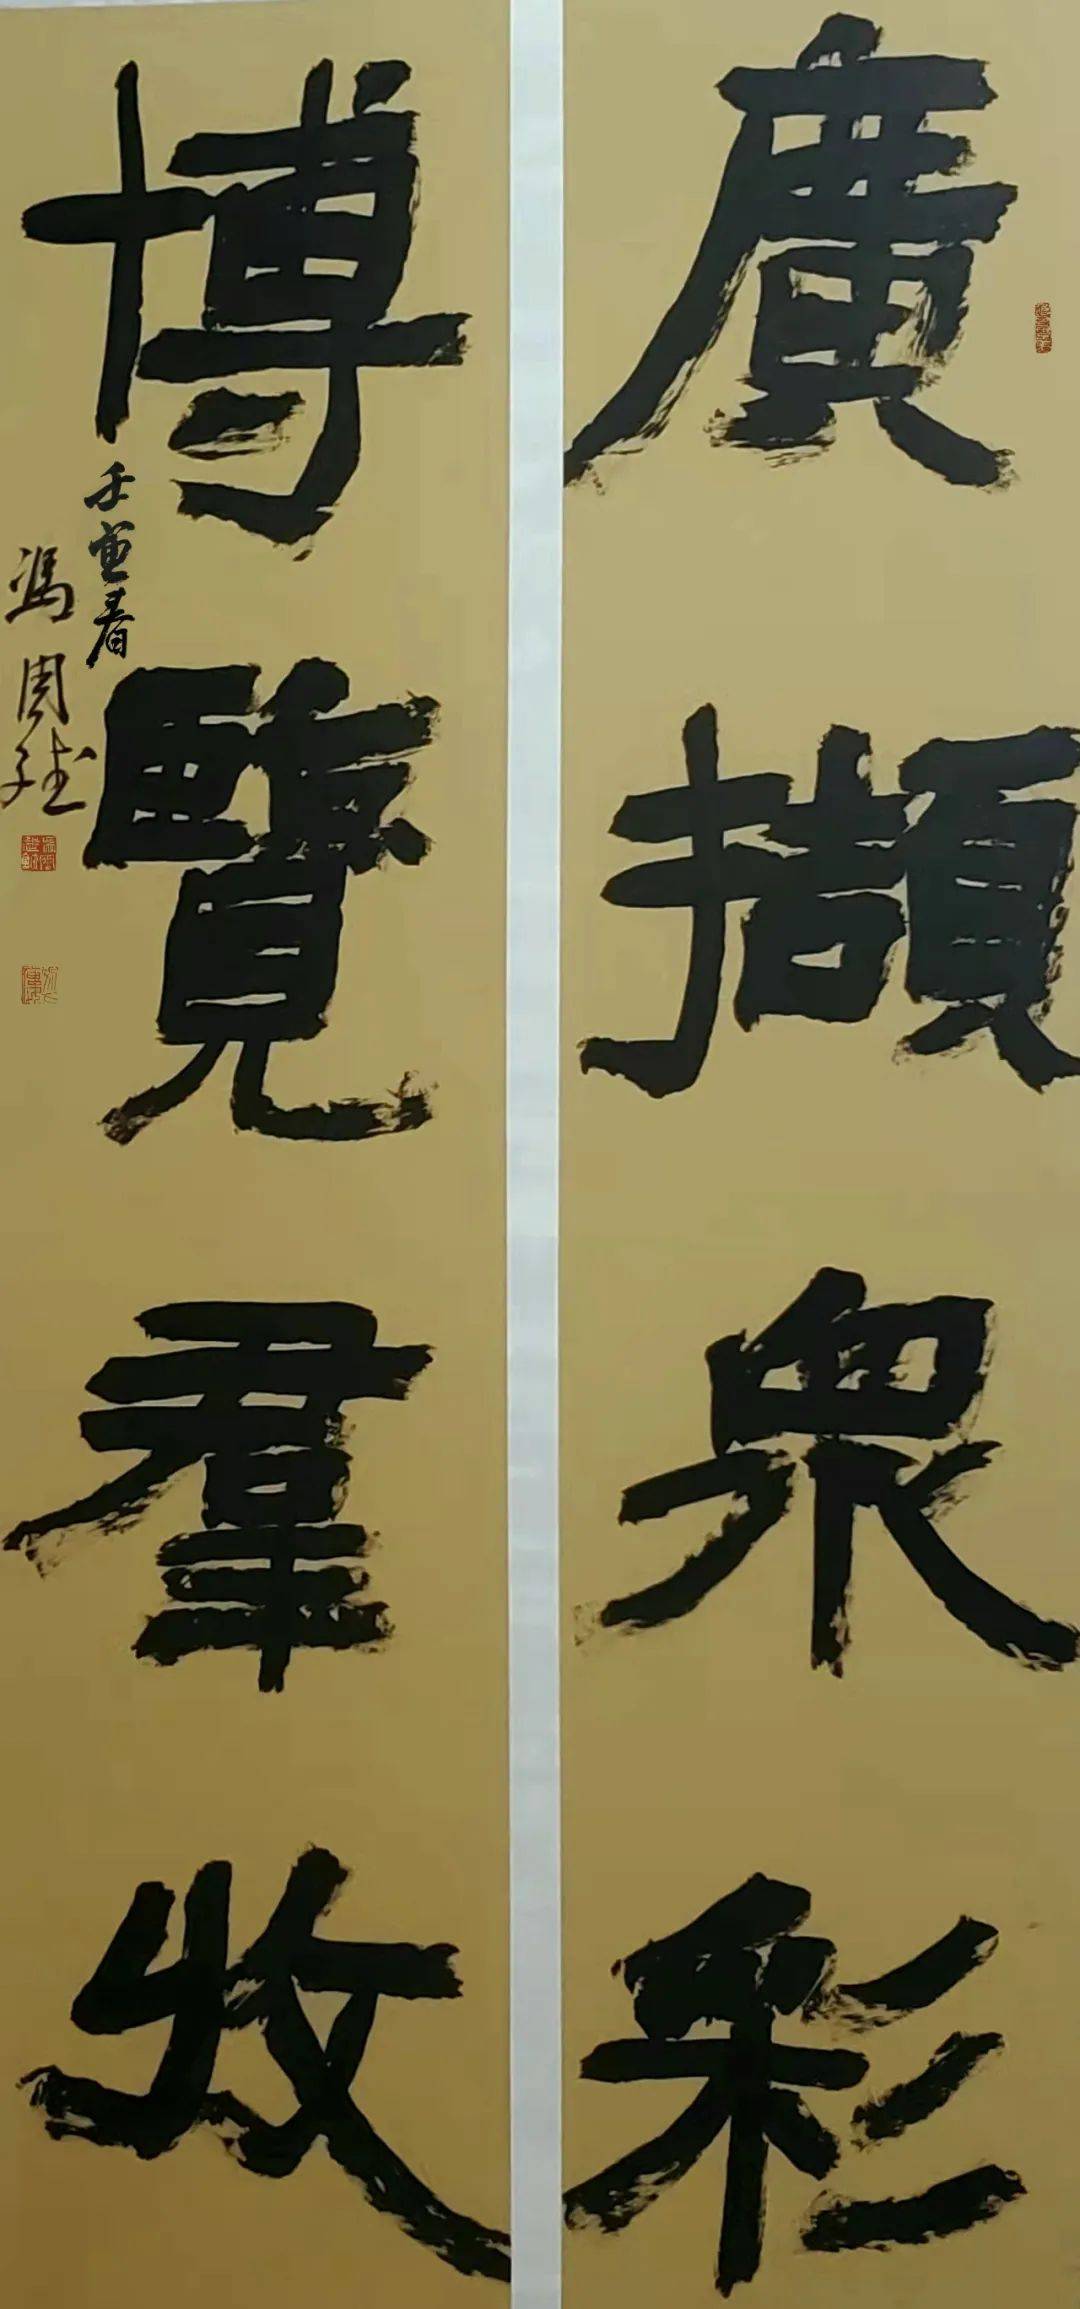 廣擷衆彩
博覽羣收
壬寅春
馮周